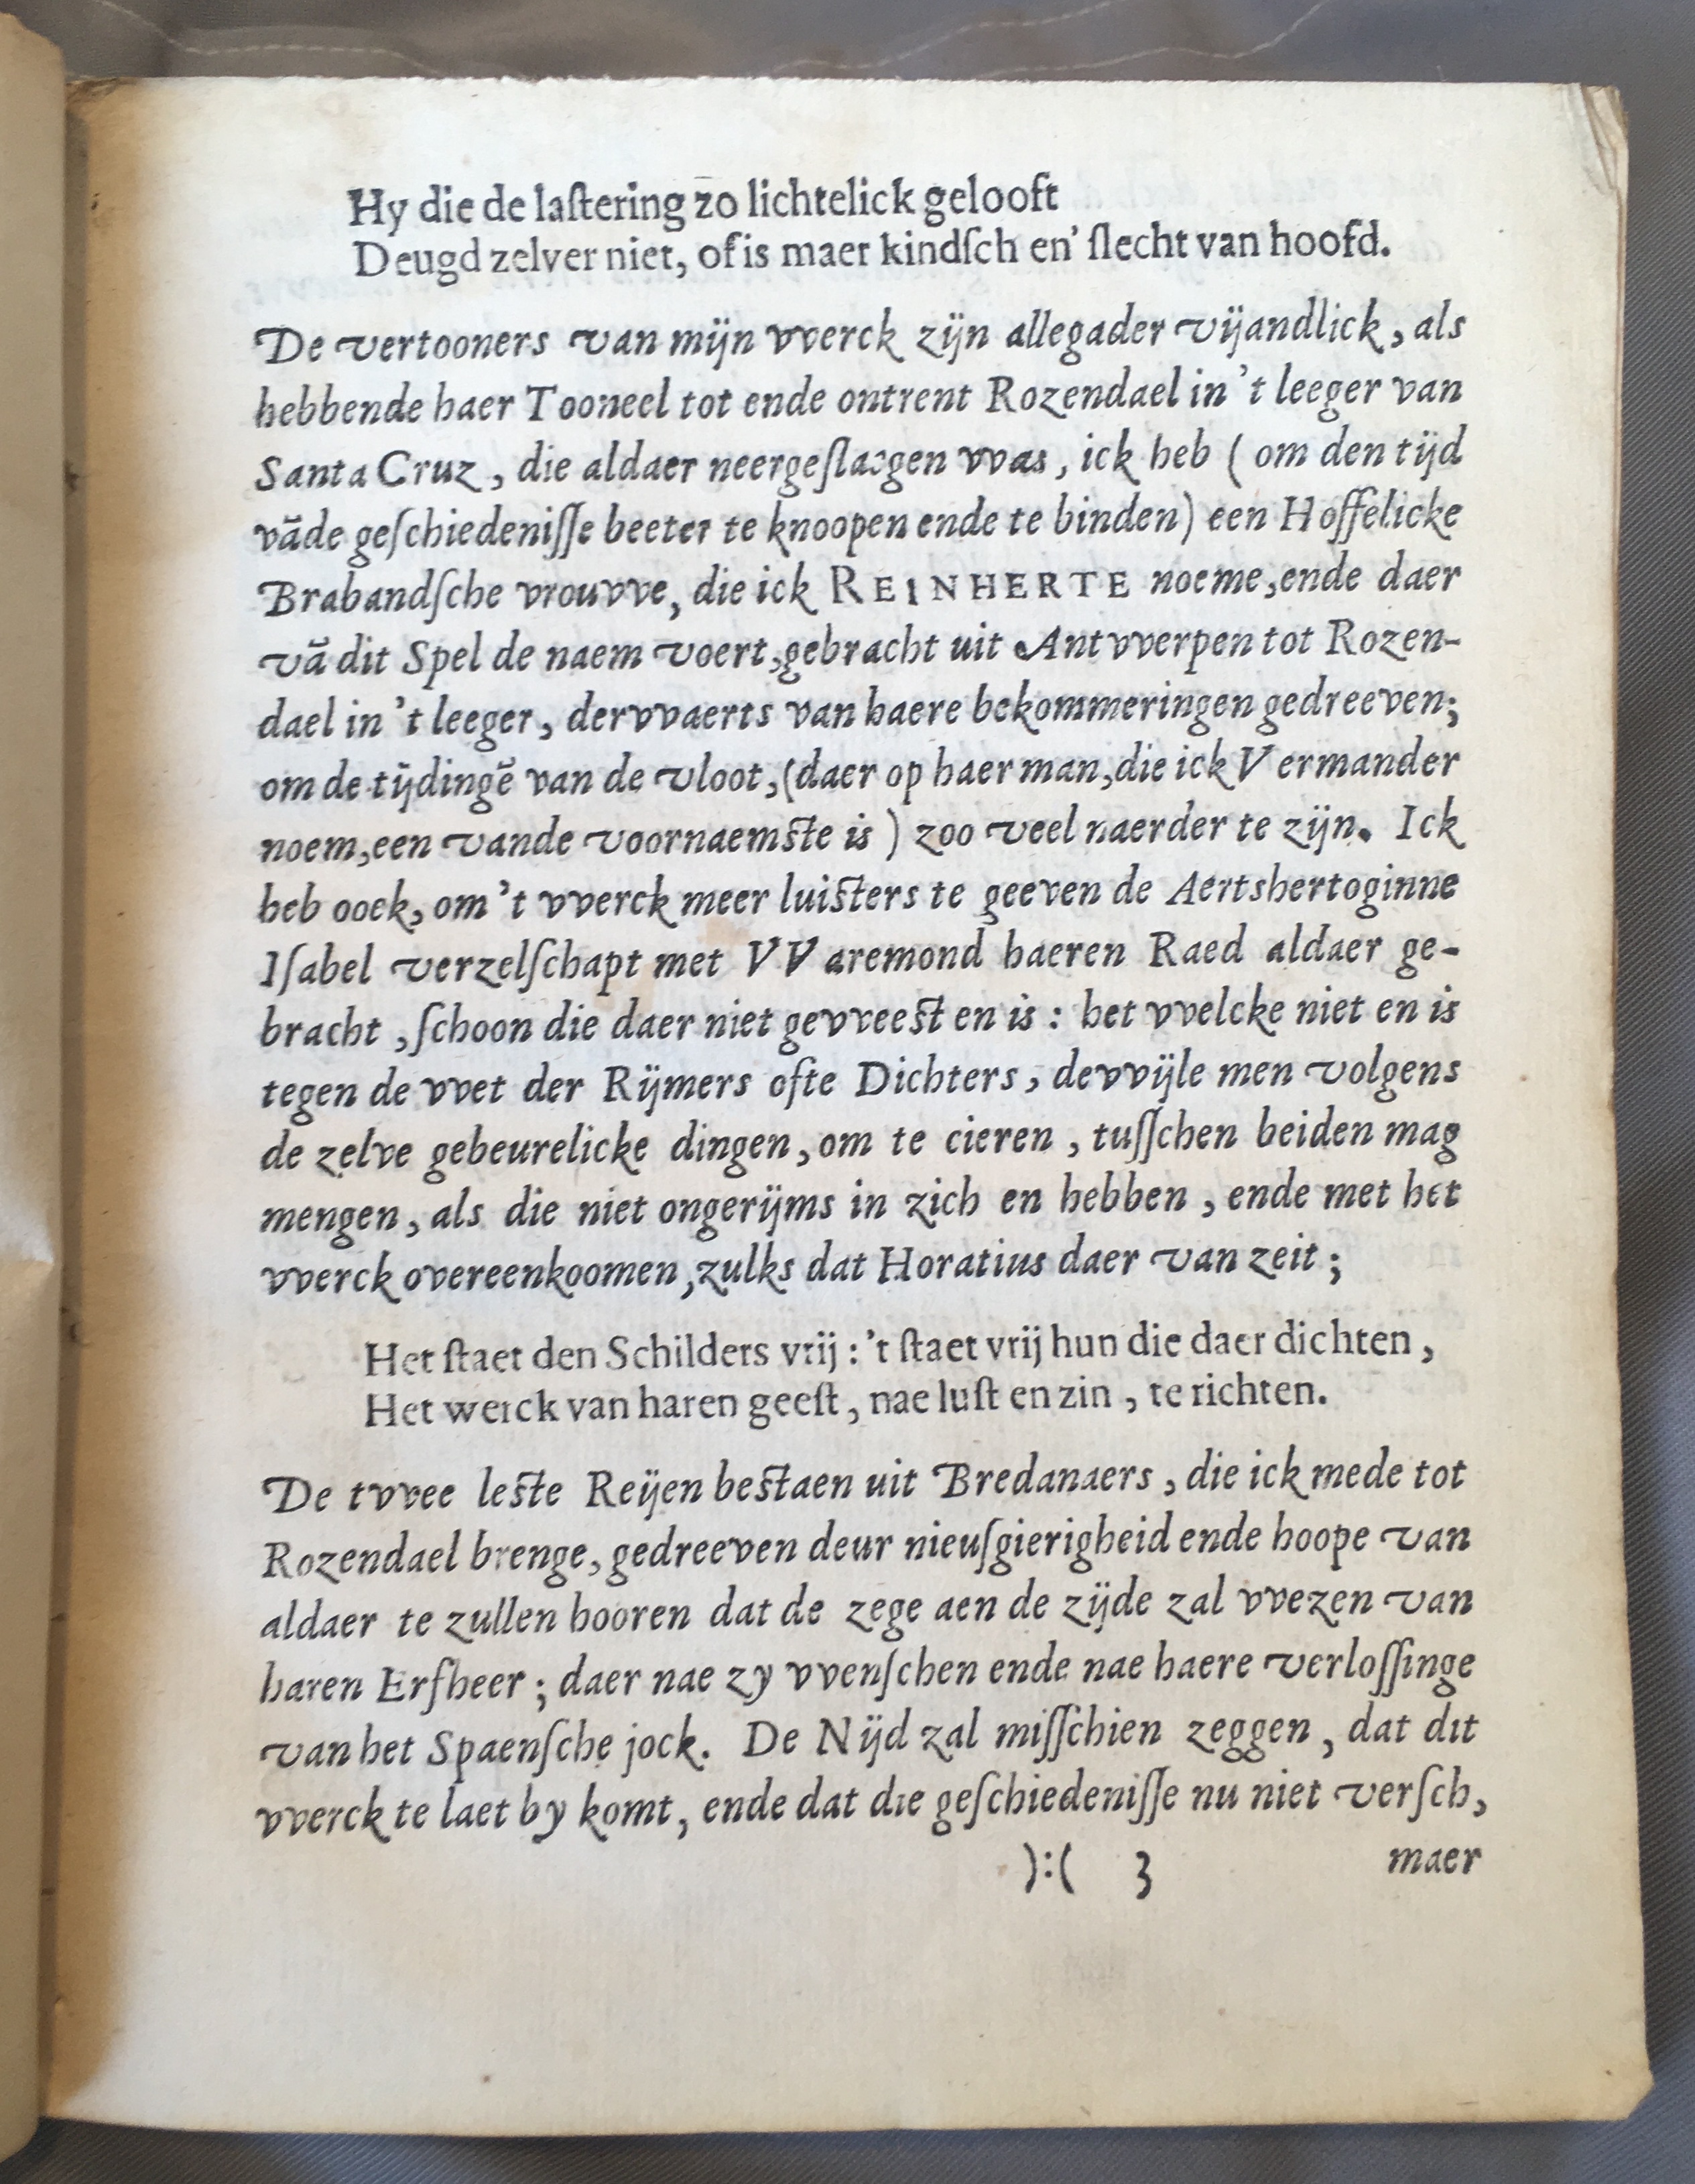 Hy die de laſtering zo lichtelick gelooft
Deugd zelver niet, of is maer kindſch en’ ſlecht van hoofd.
De vertooners van mijn vverck zijn allegader vijandlick, als
hebbende haer Tooneel tot ende ontrent Rozendael in ’t leeger van
Santa Cruz, die aldaer neergeſlaegen vvas, ick heb ( om den tijd
vāde geſchiedeniſſe beeter te knoopen ende te binden) een Hoffelicke
Brabandſche vrouvve, die ick REINHERTE noeme, ende daer
vā dit Spel de naem voert, gebracht uit Antvverpen tot Rozen-
dael in ’t leeger, dervvaerts van haere bekommeringen gedreeven;
om de tijdingē van de vloot, (daer op haer man, die ick Vermander
noem, een vande voornaemſte is ) zoo veel naerder te zijn. Ick
heb ooek, om ’t vverck meer luiſters te geeven de Aertshertoginne
Iſabel verzelſchapt met VVaremond haeren Raed aldaer ge-
bracht, ſchoon die daer niet gevveeſt en is : het vvelcke niet en is
tegen de vvet der Rijmers ofte Dichters, devvijle men volgens
de zelve gebeurelicke dingen, om te cieren, tuſſchen beiden mag
mengen, als die niet ongerijms in zich en hebben, ende met het
vverck overeenkoomen, zulks dat Horatius daer van zeit ;
Het ſtaet den Schilders vrij : ’t ſtaet vrij hun die daer dichten,
Het werck van haren geeſt, nae luſt en zin, te richten.
De tvvee leſte Reijen beſtaen uit Bredanaers, die ick mede tot
Rozendael brenge, gedreeven deur nieuſgierigheid ende hoope van
aldaer te zullen hooren dat de zege aen de zijde zal vvezen van
haren Erfheer ; daer nae zy vvenſchen ende nae haere verloſſinge
van het Spaenſche jock. De Nijd zal miſſchien zeggen, dat dit
vverck te laet by komt, ende dat die geſchiedeniſſe nu niet verſch,
):( 3 maer